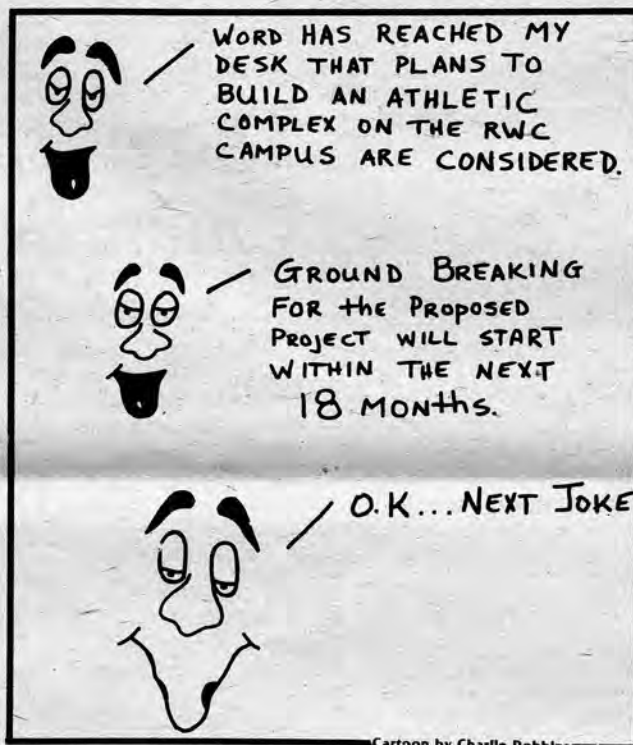 WORD HAS REACHED MY
DESK THAT PLANS TO
BUILD AN ATHLETIC
COMPLEX ON THE RWC
CAMPUS ARE CONSIDERED.
GROUND BREAKING
FOR the PROPOSED
PROJECT WILL START
WITHIN THE NEXT
18 MONthS.
O.K... NEXT JOKE
Cartoon by Charlie